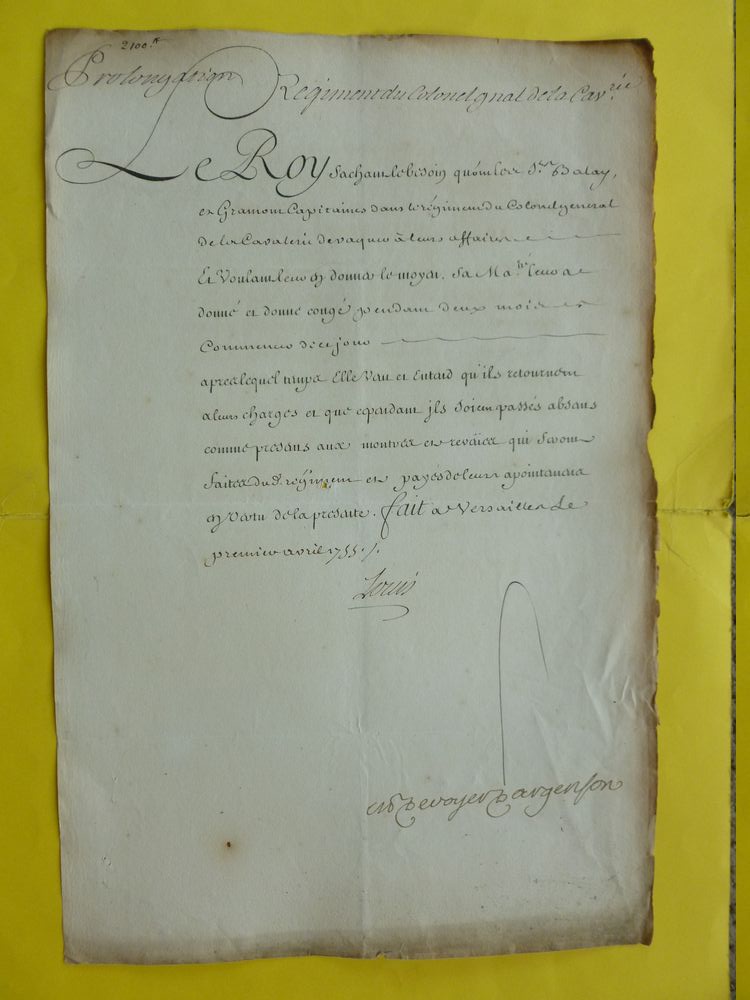 2100.tt
Prolongaõn Régiment du Colonel gnal de la Cav.rie
Le Roy sachant le besoin qu'ont les Srs Balay,
et Gramont Capitaines dans le régiment du Colonel general
de la Cavalerie de vaquer à leurs affaires
Et Voulant leur en donner le moyen, Sa Ma.té leur a
donné et donne congé pendant deux mois et
Commencer de ce jour
apres lequel temps Elle Veut et Entend qu'ils retournent
a leurs charges et que cependant jls soient passés absans
comme presens aux montres et revües qui seront
faites dud. regiment et payés de leurs apointemens
en vertu de la presente. fait a Versailles le
premier avril 1755./.
Louis
M De voyer D'argenson